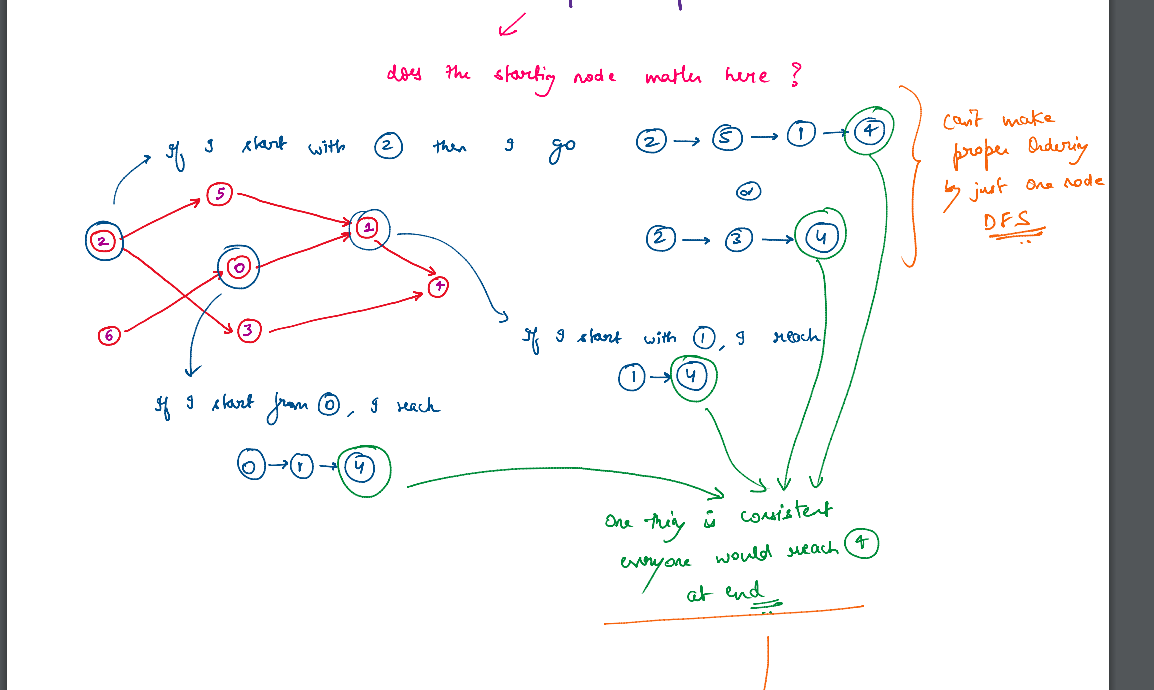 does the starting node matter here ?
If I start with 2 then I go
2 → 5 → 1 → 4
or
2 → 3 → 4
can't make
proper Ordering
↳ just one node
DFS
5
2
1
0
4
3
6
If I start with 1, I reach
1 → 4
If I start from 0, I reach
0 → 1 → 4
One thing is consistent
everyone would reach 4
at end